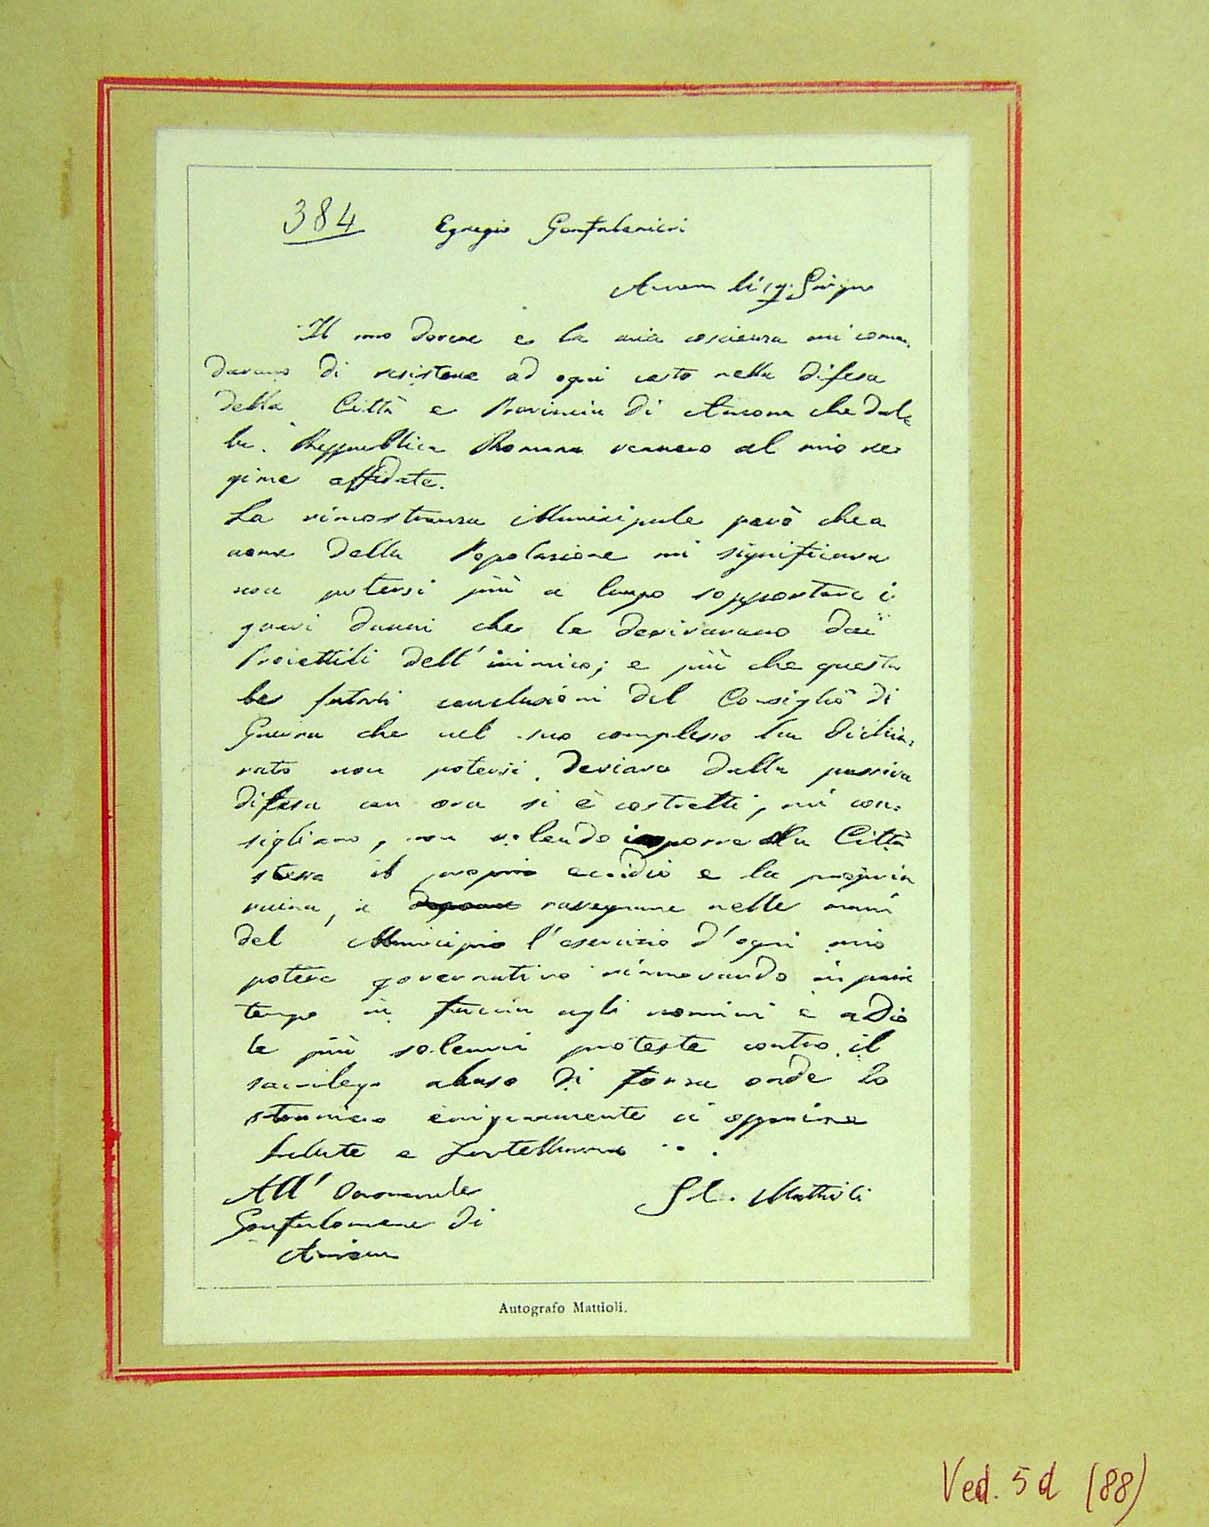 384 Egregio Gonfaloniere
Ancona li 19. Giugno
Il mio dovere e la mia coscienza mi coman
davano di resistere ad ogni costo nella difesa
della Città e Provincia di Ancona che dal
la Reppubblica Romana vennero al mio re
gime affidate.
La rimostranza Municipale però che a
nome della Popolazione mi significava
non potersi più a lungo sopportare i
gravi danni che le derivavano dai
Proiettili dell'inimico; e più che questa
le conclusioni del Consiglio di
Guerra che nel suo complesso ha dichia=
rato non potersi deviare dalla passiva
difesa cui ora si è costretti, mi con=
sigliano, non volendo imporre alla Città
stessa il proprio eccidio e la propria
ruina, a rassegnare nelle mani
del Municipio l'esercizio d'ogni mio
potere governativo rinnovando in pari
tempo in faccia agli uomini e a Dio
le più solenni proteste contro il
sacrilego abuso di forza onde lo
straniero iniquamente ci opprime
Salute e Fratellanza
All' Onorevole G. C. Mattioli
Gonfaloniere di
Ancona
Autografo Mattioli.
Ved. 5 d (88)